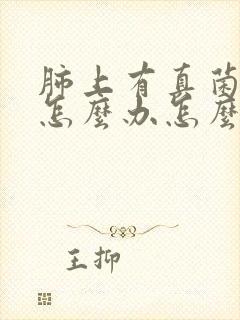 肺上有真菌
怎麼办怎麼
王抑